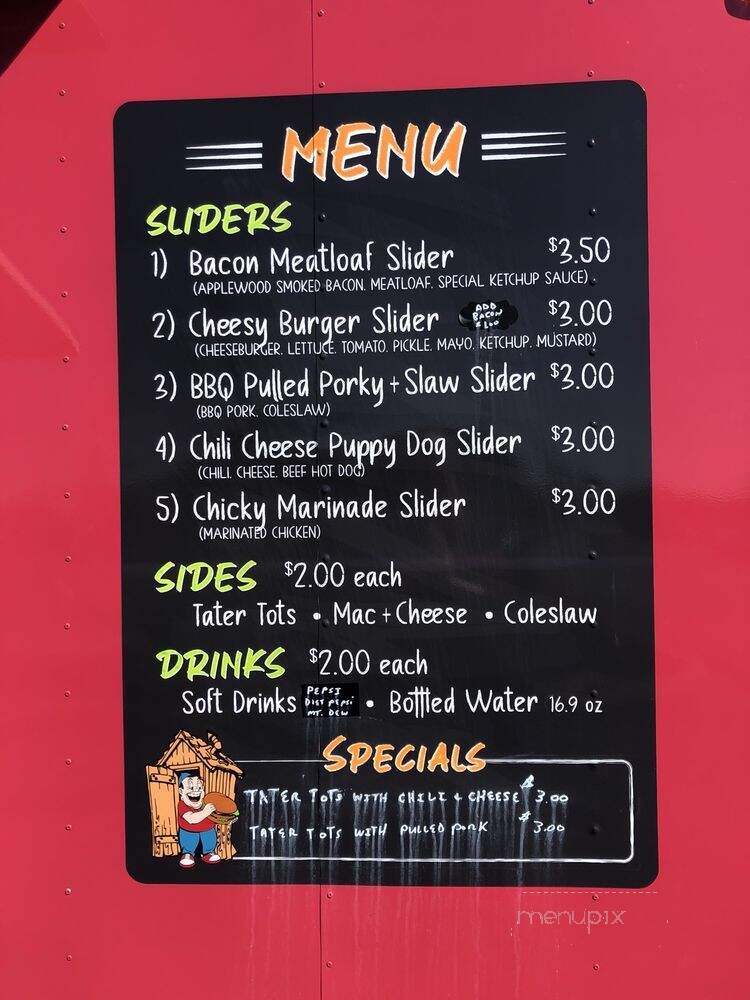 MENU
SLIDERS
1) Bacon Meatloaf Slider $3.50
(APPLEWOOD SMOKED BACON, MEATLOAF, SPECIAL KETCHUP SAUCE)
2) Cheesy Burger Slider ADD BACON $1.00 $3.00
(CHEESEBURGER, LETTUCE, TOMATO, PICKLE, MAYO, KETCHUP, MUSTARD)
3) BBQ Pulled Porky + Slaw Slider $3.00
(BBQ PORK, COLESLAW)
4) Chili Cheese Puppy Dog Slider $3.00
(CHILI, CHEESE, BEEF HOT DOG)
5) Chicky Marinade Slider $3.00
(MARINATED CHICKEN)
SIDES $2.00 each
Tater Tots • Mac + Cheese • Coleslaw
DRINKS $2.00 each
Soft Drinks PEPSI DIET PEPSI MT. DEW • Botttled Water 16.9 oz
SPECIALS
TATER TOTS WITH CHILI & CHEESE $3.00
TATER TOTS WITH PULLED PORK $3.00
menupix